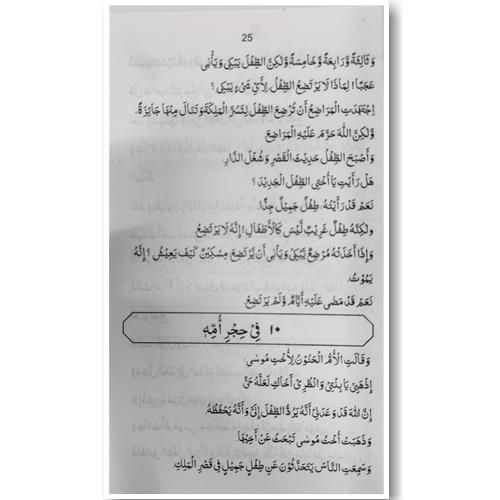 25
وَثَالِثَةٌ وَّرَابِعَةٌ وَّخَامِسَةٌ وَّلٰكِنَّ الطِّفْلَ يَبْكِىْ وَيَأْبٰى
عَجَبًا! لِمَاذَا لَا يَرْتَضِعُ الطِّفْلُ، لِأَيِّ شَىْءٍ يَبْكِىْ؟
اِجْتَهَدَتِ الْمَرَاضِعُ أَنْ تُرْضِعَ الطِّفْلَ لِتَسُرَّ الْمَلِكَةَ وَتَنَالَ مِنْهَا جَائِزَةً.
وَلٰكِنَّ اللّٰهَ حَرَّمَ عَلَيْهِ الْمَرَاضِعَ
وَأَصْبَحَ الطِّفْلُ حَدِيْثَ الْقَصْرِ وَشُغْلَ الدَّارِ.
هَلْ رَأَيْتِ يَا أُخْتِى الطِّفْلَ الْجَدِيْدَ؟
نَعَمْ قَدْ رَأَيْتُهُ، طِفْلٌ جَمِيْلٌ جِدًّا.
وَلٰكِنَّهُ طِفْلٌ غَرِيْبٌ لَيْسَ كَالْأَطْفَالِ! إِنَّهُ لَا يَرْتَضِعُ
وَإِذَا أَخَذَتْهُ مُرْضِعٌ يَّبْكِىْ وَيَأْبٰى أَنْ يَّرْتَضِعَ مِسْكِيْنٌ كَيْفَ يَعِيْشُ؟ إِنَّهُ
يَمُوْتُ.
نَعَمْ قَدْ مَضٰى عَلَيْهِ أَيَّامٌ وَّلَمْ يَرْتَضِعْ
١٠ فِيْ حِجْرِ أُمِّهٖ
وَقَالَتِ الْأُمُّ الْحَنُوْنُ لِأُخْتِ مُوْسٰى.
اِذْهَبِىْ يَا بِنْتِىْ وَانْظُرِىْ أَخَاكِ لَعَلَّهُ حَىٌّ.
إِنَّ اللّٰهَ قَدْ وَعَدَنِىْ أَنَّهُ يَرُدُّ الطِّفْلَ إِلَىَّ وَأَنَّهُ يَحْفَظُهُ.
وَذَهَبَتْ أُخْتُ مُوْسٰى تَبْحَثُ عَنْ أَخِيْهَا.
وَسَمِعَتِ النَّاسَ يَتَحَدَّثُوْنَ عَنْ طِفْلٍ جَمِيْلٍ فِى قَصْرِ الْمَلِكِ.